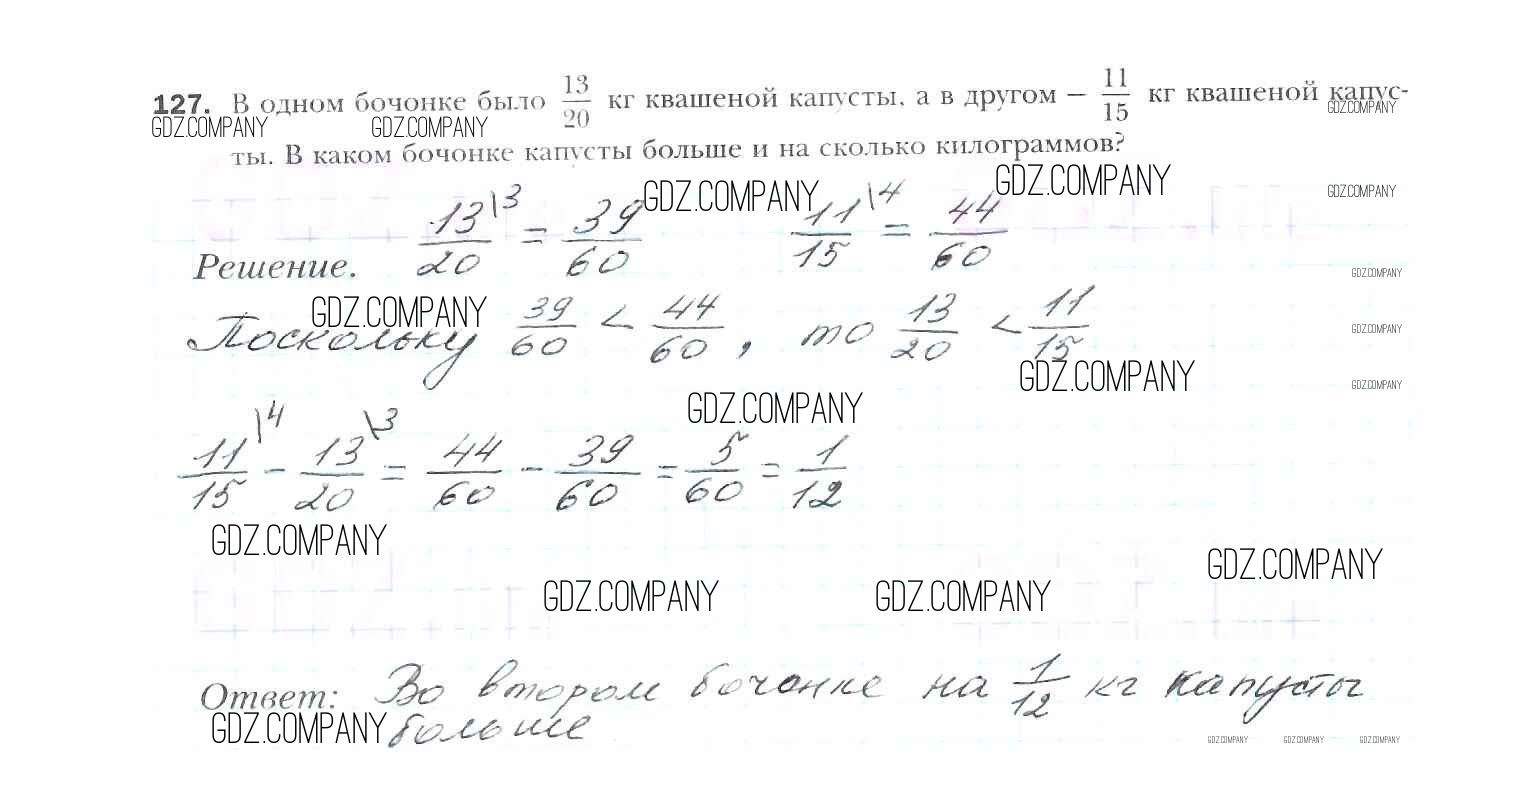 127. В одном бочонке было 13/20 кг квашеной капусты, а в другом – 11/15 кг квашеной капус-
GDZ.COMPANY GDZ.COMPANY GDZ.COMPANY
ты. В каком бочонке капусты больше и на сколько килограммов?
GDZ.COMPANY GDZ.COMPANY GDZ.COMPANY
Решение. 13/20 \3 = 39/60 11/15 \4 = 44/60
GDZ.COMPANY
GDZ.COMPANY GDZ.COMPANY
Поскольку 39/60 < 44/60, то 13/20 < 11/15
GDZ.COMPANY GDZ.COMPANY
GDZ.COMPANY
11/15 \4 - 13/20 \3 = 44/60 - 39/60 = 5/60 = 1/12
GDZ.COMPANY
GDZ.COMPANY GDZ.COMPANY GDZ.COMPANY
Ответ: Во втором бочонке на 1/12 кг капусты
GDZ.COMPANY больше
GDZ.COMPANY GDZ.COMPANY GDZ.COMPANY